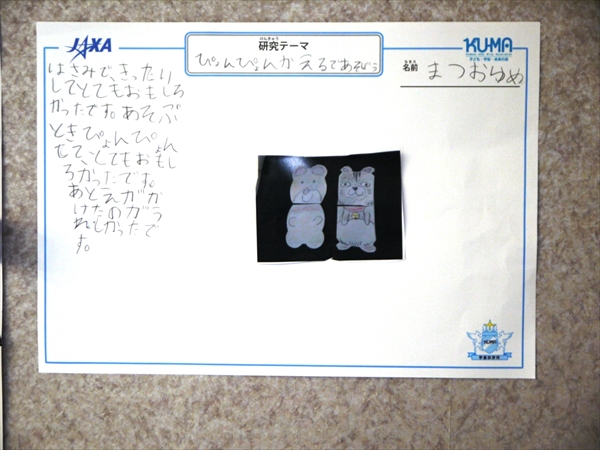 JAXA
けんきゅう
研究テーマ
ぴょんぴょんかえるであそぼう
KU-MA
子ども・宇宙・未来の会
なまえ
名前
まつおゆめ
はさみできったり
してとてもおもしろ
かったです。あそぶ
ときぴょんぴょん
して、とてもおもし
ろかったです。
あとえがか
けたのがう
れしかったで
す。
KUMA
宇宙の学校